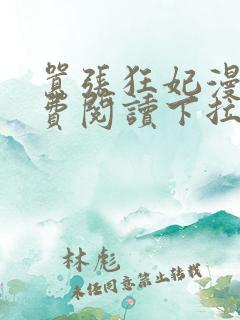 囂張狂妃漫
費閱讀下拉
林彪
未任同意禁止转载